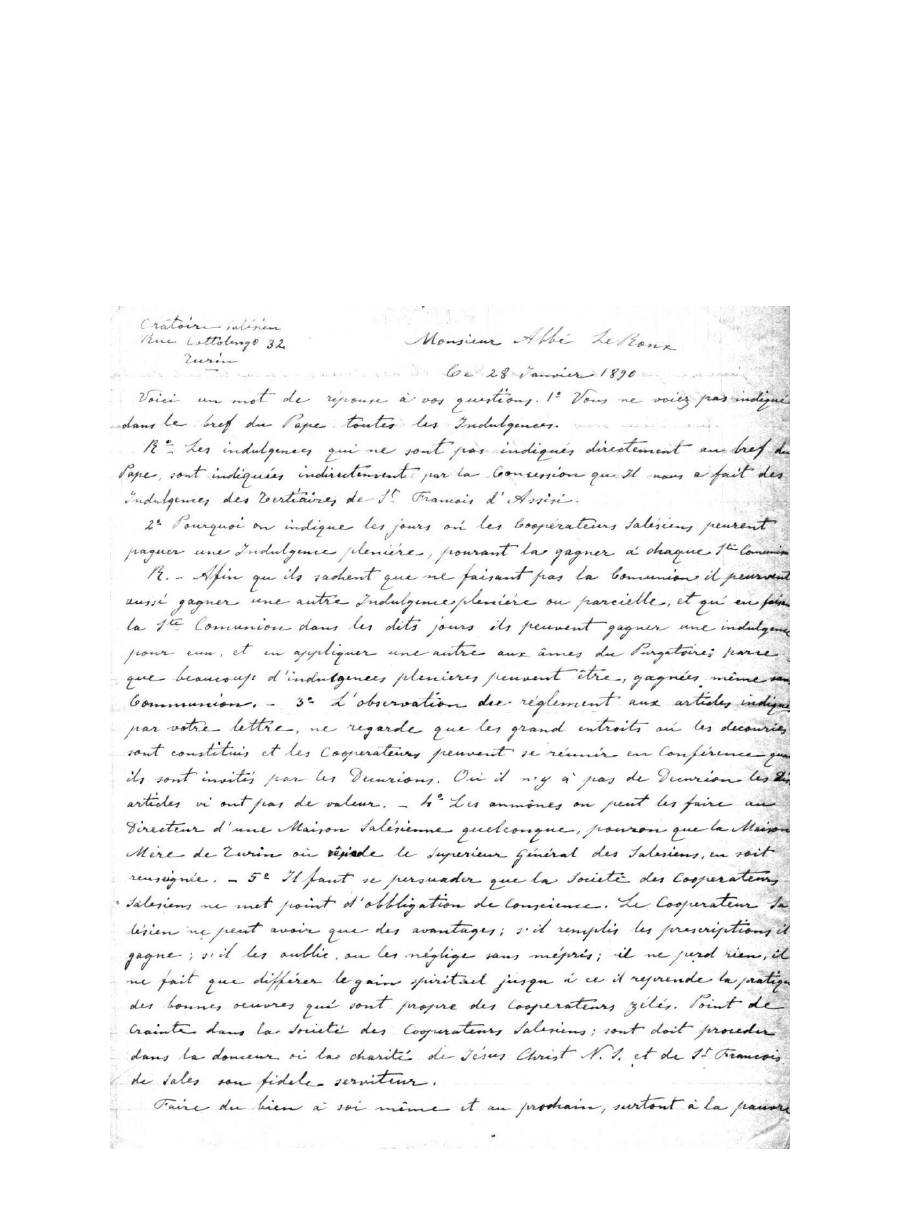 Oratoire salésien
Rue Cottolengo 32
Turin
Monsieur Abbé Le Roux
Ce 28 Janvier 1890
Voici un mot de réponse à vos questions. 1° Vous ne voiez pas indiqué
dans le bref du Pape toutes les Indulgences.
R.e Les indulgences qui ne sont pas indiqués directement au bref du
Pape, sont indiquées indirectement par la Concession que Il nous a fait des
Indulgences des Tertiaires de St. Francois d'Assisi.
2° Pourquoi on indique les jours où les Coopérateurs Salésiens peuvent
gagner une Indulgence pleniére, pouvant la gagner à chaque Ste Comunion
R. - Afin qu'ils sachent que ne faisant pas la Comunion il peuvent
aussi gagner une autre Indulgence pleniére ou parcielle, et qu'en fais
la Ste Comunion dans les dits jours ils peuvent gagner une indulgence
pour eux, et en appliquer une autre aux âmes du Purgatoire; parce
que beaucoup d'indulgences plenieres peuvent être, gagnées même san
Communion. - 3° L'observation des réglement aux articles indiqué
par votre lettre, ne regarde que les grand entroits où les decuries
sont constitués et les Cooperateurs peuvent se réunir en Conférence quan
ils sont invités par les Decurions. Où il n'y à pas de Decurion les dis
articles vi ont pas de valeur. - 4° Les aumônes on peut les faire au
Directeur d'une Maison Salésienne quelconque, pourvu que la Maison
Mère de Turin où réside le Superieur Général des Salesiens, en soit
renseignée. - 5° Il faut se persuader que la Societé des Cooperateurs
Salesiens ne met point d'obbligation de Conscience. Le Cooperateur Sa
lésien ne peut avoir que des avantages; s'il remplis les prescriptions il
gagne; s'il les oublie, ou les néglige sans mépris; il ne perd rien, il
ne fait que différer le gain spirituel jusqu à ce il reprende la pratiqu
des bonnes oeuvres qui sont propre des Cooperateurs zélés. Point de
Crainte dans la Societé des Cooperateurs Salesiens; sont doit proceder
dans la douceur où la charité de Jésus Christ N. S. et de St. Francois
de Sales son fidele serviteur.
Faire du bien à soi même et au prochain, surtout à la pauvre